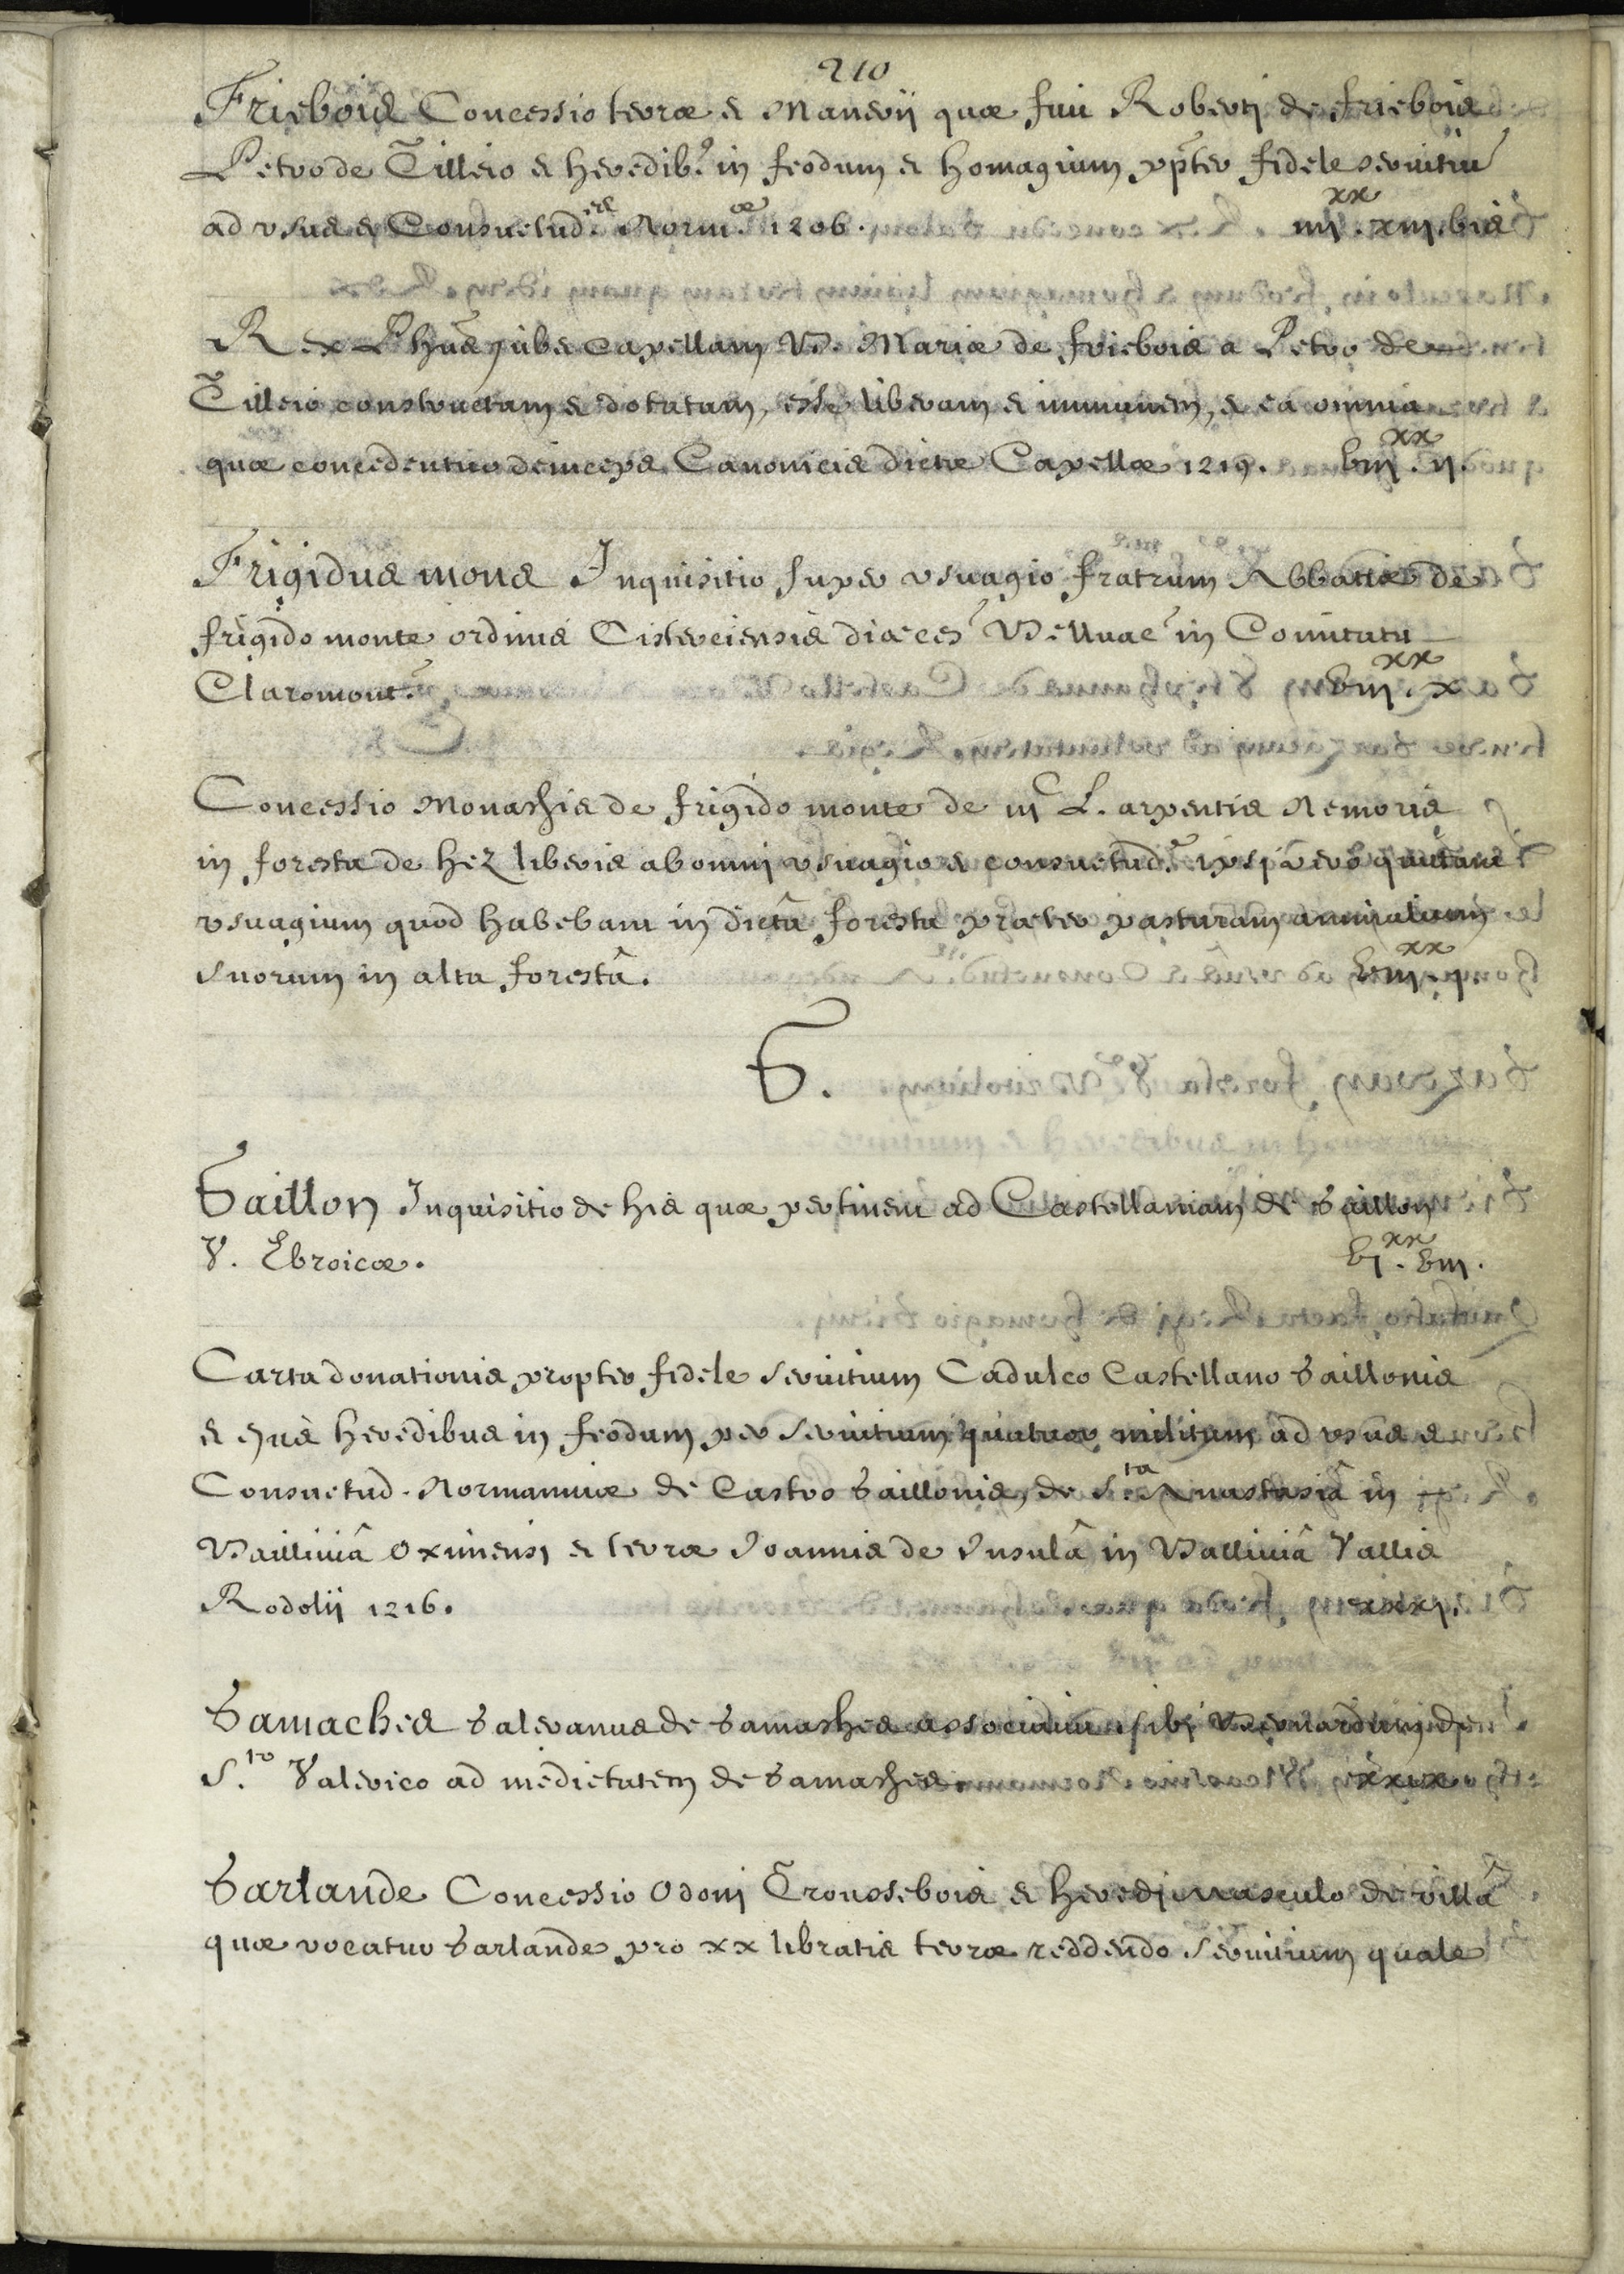 210
Friebois Concessio terræ et Manerij quæ fuit Roberti de friebois
Petro de Tilleio et heredib9 in feodum et homagium, ppter fidele seruitiũ
ad vsus et Consuetud.es Norm.æ 1206. iiij.xx xiij. bis
Rex Phũs jubet Capellam B. Mariæ de friebois a Petro de
Tilleio constructam et dotatam, esse liberam et immunem, et ea omnia
quæ concedentur deinceps Canonicis dictæ Capellæ 1219. viij.xx ij.
Frigidus mons Inquisitio super vsuagio fratrum Abbatiæ de
frigido monte ordinis Cisterciensis diœces~ Belluac~ in Comitatu
Claromont.~ viij.xx x
Concessio Monachis de frigido monte de iijC L. arpentis Nemoris
in foresta de hez liberis ab omni vsuagio et consuetud.~ ipsi vero quitant
vsuagium quod habebant in dictâ foresta præter pasturam animalium
suorum in alta forestâ. viij.xx j.
G.
Gaillon Inquisitio de his quæ pertinent ad Castellaniam de Gaillon
V. Ebroicæ. vj.xx viij.
Carta donationis propter fidele seruitium Cadulco Castellano Gaillonis
et ejus heredibus in feodum per seruitium quatuor militum ad vsus et
Consuetud. Normanniæ de Castro Gaillonis, de S.ta Anastasiâ in
Bailliuiâ Oximensi et terræ Joannis de Insulâ in Balliuiâ Vallis
Rodolij 1216. xxxj.
Gamaches Galeranus de Gamaches associauit sibi Bernardum de
S.to Valerico ad medietatem de Gamaches. xxix
Garlande Concessio Odoni Troussebois et heredi masculo de villâ
quæ vocatur Garlande pro xx libratis terræ reddendo seruitium quale